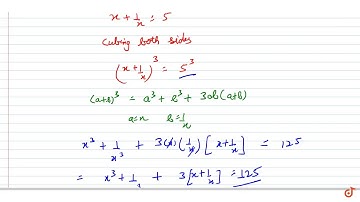 x + 1/x = 5
Cubing both sides
(x + 1/x)³ = 5³
(a+b)³ = a³ + b³ + 3ab(a+b)
a=x b=1/x
x³ + 1/x³ + 3(x)(1/x)[x + 1/x] = 125
= x³ + 1/x + 3[x + 1/x] = 125